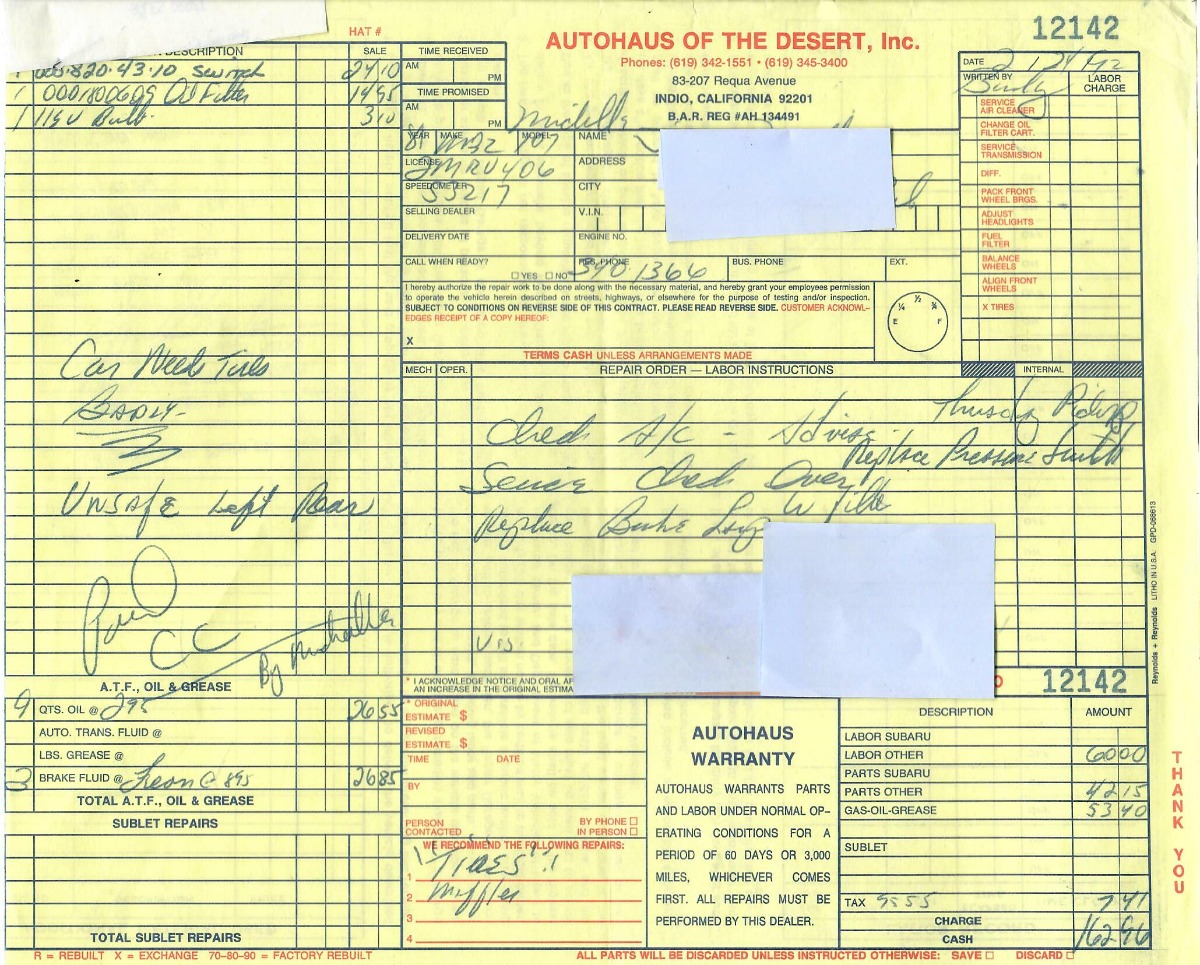 HAT #
12142
AUTOHAUS OF THE DESERT, Inc.
Phones: (619) 342-1551 • (619) 345-3400
83-207 Requa Avenue
INDIO, CALIFORNIA 92201
B.A.R. REG #AH 134491
DESCRIPTION SALE
1 000.820.43.10 Switch 24 10
1 0001800609 Oil Filter 14 95
1 1154 Bulb 3 10
TIME RECEIVED
AM PM
TIME PROMISED
AM PM
Michelle
DATE
WRITTEN BY
LABOR CHARGE
SERVICE AIR CLEANER
CHANGE OIL FILTER CART.
SERVICE TRANSMISSION
DIFF.
PACK FRONT WHEEL BRGS.
ADJUST HEADLIGHTS
FUEL FILTER
BALANCE WHEELS
ALIGN FRONT WHEELS
X TIRES
YEAR MAKE MODEL NAME
81 MBZ
LICENSE ADDRESS
2MRU406
SPEEDOMETER CITY
53217
SELLING DEALER V.I.N.
DELIVERY DATE ENGINE NO.
CALL WHEN READY? RES. PHONE BUS. PHONE EXT.
☐ YES ☐ NO 340.1366
I hereby authorize the repair work to be done along with the necessary material, and hereby grant your employees permission
to operate the vehicle herein described on streets, highways, or elsewhere for the purpose of testing and/or inspection.
SUBJECT TO CONDITIONS ON REVERSE SIDE OF THIS CONTRACT. PLEASE READ REVERSE SIDE. CUSTOMER ACKNOWL-
EDGES RECEIPT OF A COPY HEREOF:
X
E ¼ ½ ¾ F
TERMS CASH UNLESS ARRANGEMENTS MADE
MECH OPER. REPAIR ORDER — LABOR INSTRUCTIONS INTERNAL
Check A/C - Advise
Replace Pressure Switch
Service Check Over
Replace
Car Needs Tires
BADLY-
UNSAFE Left Rear
Paid
CC
By Michelle
* I ACKNOWLEDGE NOTICE AND ORAL
AN INCREASE IN THE ORIGINAL ESTIMA
12142
A.T.F., OIL & GREASE
9 QTS. OIL @ 295 26 55
AUTO. TRANS. FLUID @
LBS. GREASE @
3 BRAKE FLUID @ Freon @ 895 26 85
TOTAL A.T.F., OIL & GREASE
SUBLET REPAIRS
TOTAL SUBLET REPAIRS
* ORIGINAL ESTIMATE $
REVISED ESTIMATE $
TIME DATE
BY
PERSON CONTACTED
BY PHONE ☐
IN PERSON ☐
WE RECOMMEND THE FOLLOWING REPAIRS:
1 TIRES!!
2 Muffler
3
4
AUTOHAUS
WARRANTY
AUTOHAUS WARRANTS PARTS
AND LABOR UNDER NORMAL OP-
ERATING CONDITIONS FOR A
PERIOD OF 60 DAYS OR 3,000
MILES, WHICHEVER COMES
FIRST. ALL REPAIRS MUST BE
PERFORMED BY THIS DEALER.
DESCRIPTION AMOUNT
LABOR SUBARU
LABOR OTHER 60 00
PARTS SUBARU
PARTS OTHER 42 15
GAS-OIL-GREASE 53 40
SUBLET
TAX 95 55 7 41
CHARGE
CASH 162 96
THANK YOU
Reynolds + Reynolds LITHO IN U.S.A. GPD-068613
R = REBUILT X = EXCHANGE 70-80-90 = FACTORY REBUILT
ALL PARTS WILL BE DISCARDED UNLESS INSTRUCTED OTHERWISE: SAVE ☐ DISCARD ☐